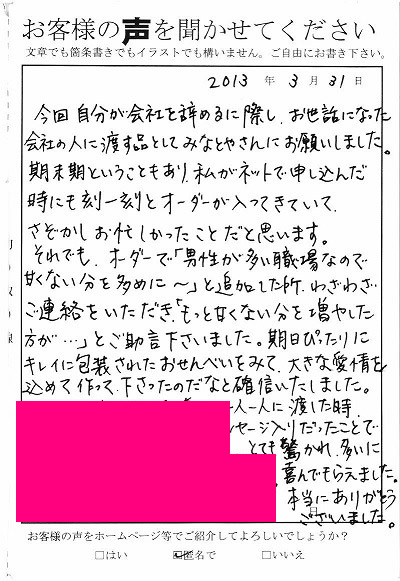 お客様の声を聞かせてください
文章でも箇条書きでもイラストでも構いません。ご自由にお書き下さい。
2013 年 3 月 31 日
今回自分が会社を辞めるに際し、お世話になった
会社の人に渡す品としてみなとやさんにお願いしました。
期末期ということもあり、私がネットで申し込んだ
時にも刻一刻とオーダーが入ってきていて、
さぞかしお忙しかったことだと思います。
それでも、オーダーで「男性が多い職場なので
甘くない分を多めに〜」と追加した所、わざわざ
ご連絡をいただき、「もっと甘くない分を増やした
方が…」とご助言下さいました。期日ぴったりに
キレイに包装されたおせんべいをみて、大きな愛情を
込めて作って下さったのだなと確信いたしました。
一人一人に渡した時、
セージ入りだったことで
とても驚かれ、多いに
喜んでもらえました。
本当にありがとう
ございました。
お客様の声をホームページ等でご紹介してよろしいでしょうか?
□はい ■匿名で □いいえ